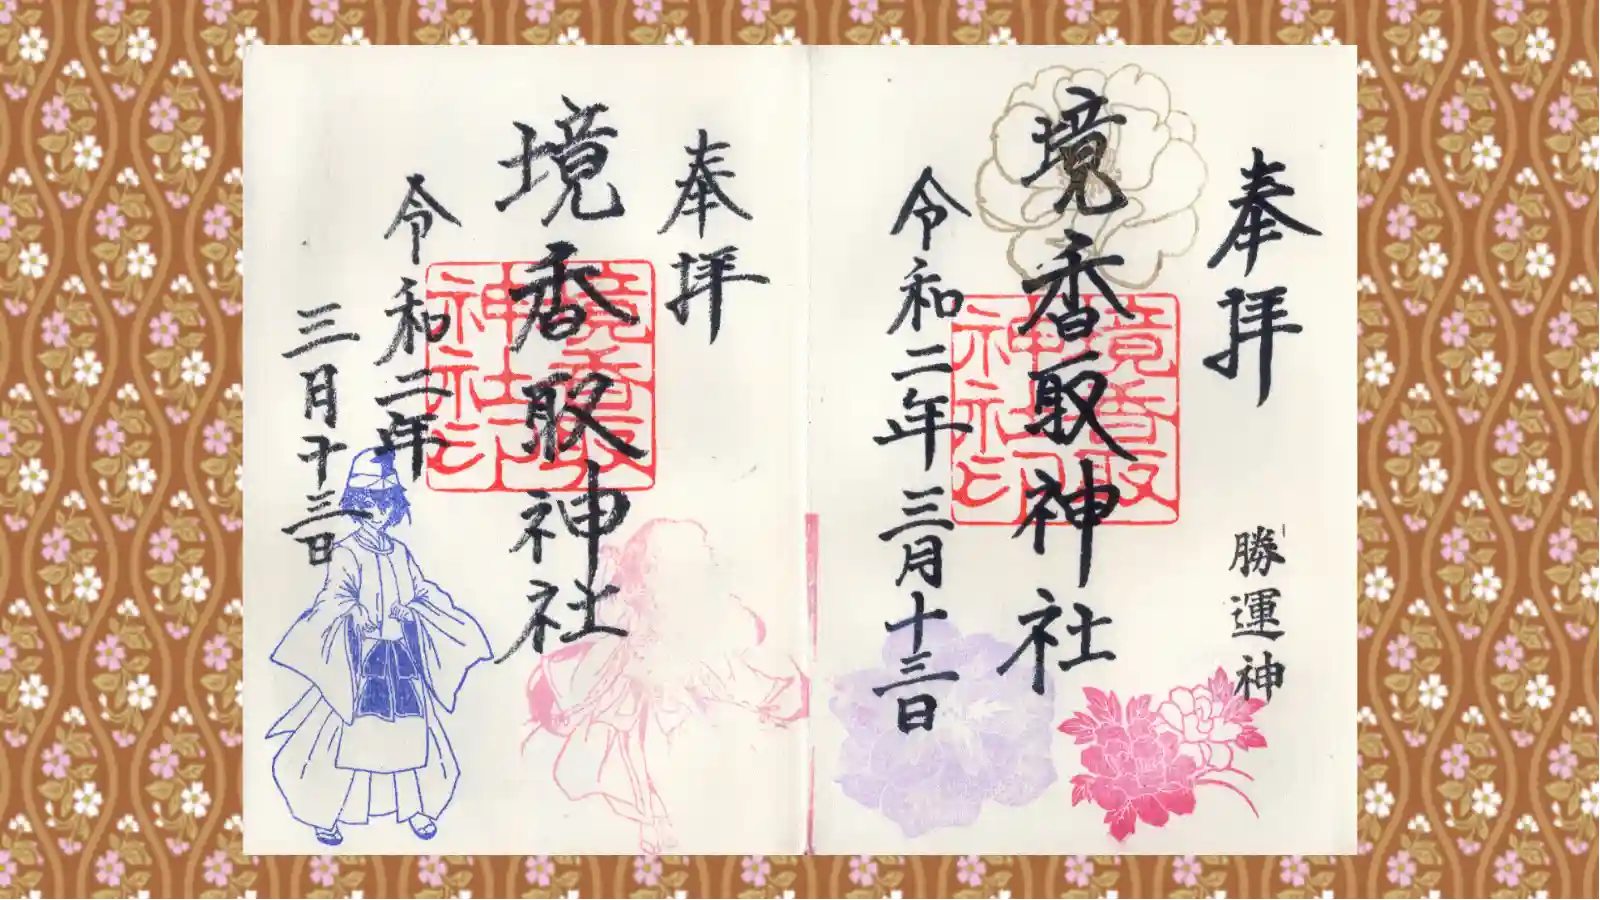 奉拝
勝運神
境香取神社
令和二年三月十三日
境香取神社印
奉拝
境香取神社
令和二年
三月十三日
境香取神社印